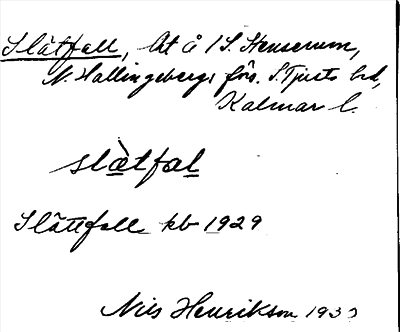 Slätfall, lht å /S. Stenserum,
N. Hallingebergs förs. S. Tjusts hd,
Kalmar l.
slàtfal
Slättfall kb 1929
Nils Henrikson 1933